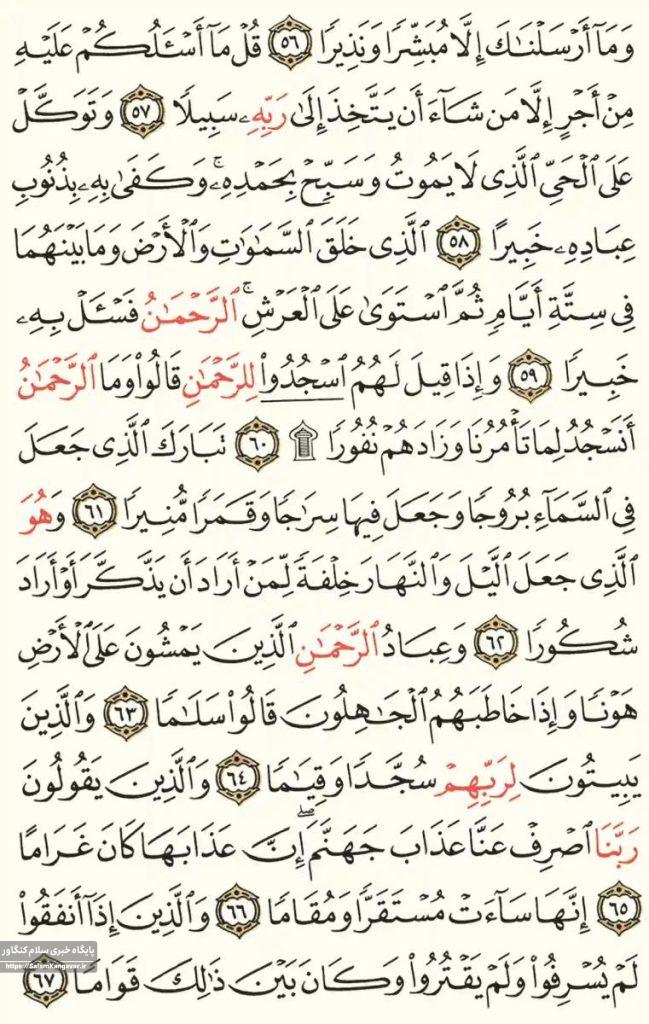 وَمَآ أَرْسَلْنَـٰكَ إِلَّا مُبَشِّرًا وَنَذِيرًا ٥٦ قُلْ مَآ أَسْـَٔلُكُمْ عَلَيْهِ
مِنْ أَجْرٍ إِلَّا مَن شَآءَ أَن يَتَّخِذَ إِلَىٰ رَبِّهِۦ سَبِيلًا ٥٧ وَتَوَكَّلْ
عَلَى ٱلْحَىِّ ٱلَّذِى لَا يَمُوتُ وَسَبِّحْ بِحَمْدِهِۦ ۚ وَكَفَىٰ بِهِۦ بِذُنُوبِ
عِبَادِهِۦ خَبِيرًا ٥٨ ٱلَّذِى خَلَقَ ٱلسَّمَـٰوَٰتِ وَٱلْأَرْضَ وَمَا بَيْنَهُمَا
فِى سِتَّةِ أَيَّامٍ ثُمَّ ٱسْتَوَىٰ عَلَى ٱلْعَرْشِ ۚ ٱلرَّحْمَـٰنُ فَسْـَٔلْ بِهِۦ
خَبِيرًا ٥٩ وَإِذَا قِيلَ لَهُمُ ٱسْجُدُوا۟ لِلرَّحْمَـٰنِ قَالُوا۟ وَمَا ٱلرَّحْمَـٰنُ
أَنَسْجُدُ لِمَا تَأْمُرُنَا وَزَادَهُمْ نُفُورًا ۩ ٦٠ تَبَارَكَ ٱلَّذِى جَعَلَ
فِى ٱلسَّمَآءِ بُرُوجًا وَجَعَلَ فِيهَا سِرَٰجًا وَقَمَرًا مُّنِيرًا ٦١ وَهُوَ
ٱلَّذِى جَعَلَ ٱلَّيْلَ وَٱلنَّهَارَ خِلْفَةً لِّمَنْ أَرَادَ أَن يَذَّكَّرَ أَوْ أَرَادَ
شُكُورًا ٦٢ وَعِبَادُ ٱلرَّحْمَـٰنِ ٱلَّذِينَ يَمْشُونَ عَلَى ٱلْأَرْضِ
هَوْنًا وَإِذَا خَاطَبَهُمُ ٱلْجَـٰهِلُونَ قَالُوا۟ سَلَـٰمًا ٦٣ وَٱلَّذِينَ
يَبِيتُونَ لِرَبِّهِمْ سُجَّدًا وَقِيَـٰمًا ٦٤ وَٱلَّذِينَ يَقُولُونَ
رَبَّنَا ٱصْرِفْ عَنَّا عَذَابَ جَهَنَّمَ ۖ إِنَّ عَذَابَهَا كَانَ غَرَامًا
٦٥ إِنَّهَا سَآءَتْ مُسْتَقَرًّا وَمُقَامًا ٦٦ وَٱلَّذِينَ إِذَآ أَنفَقُوا۟
لَمْ يُسْرِفُوا۟ وَلَمْ يَقْتُرُوا۟ وَكَانَ بَيْنَ ذَٰلِكَ قَوَامًا ٦٧
پایگاه خبری سلام کنگاور
https://SalamKangavar.ir